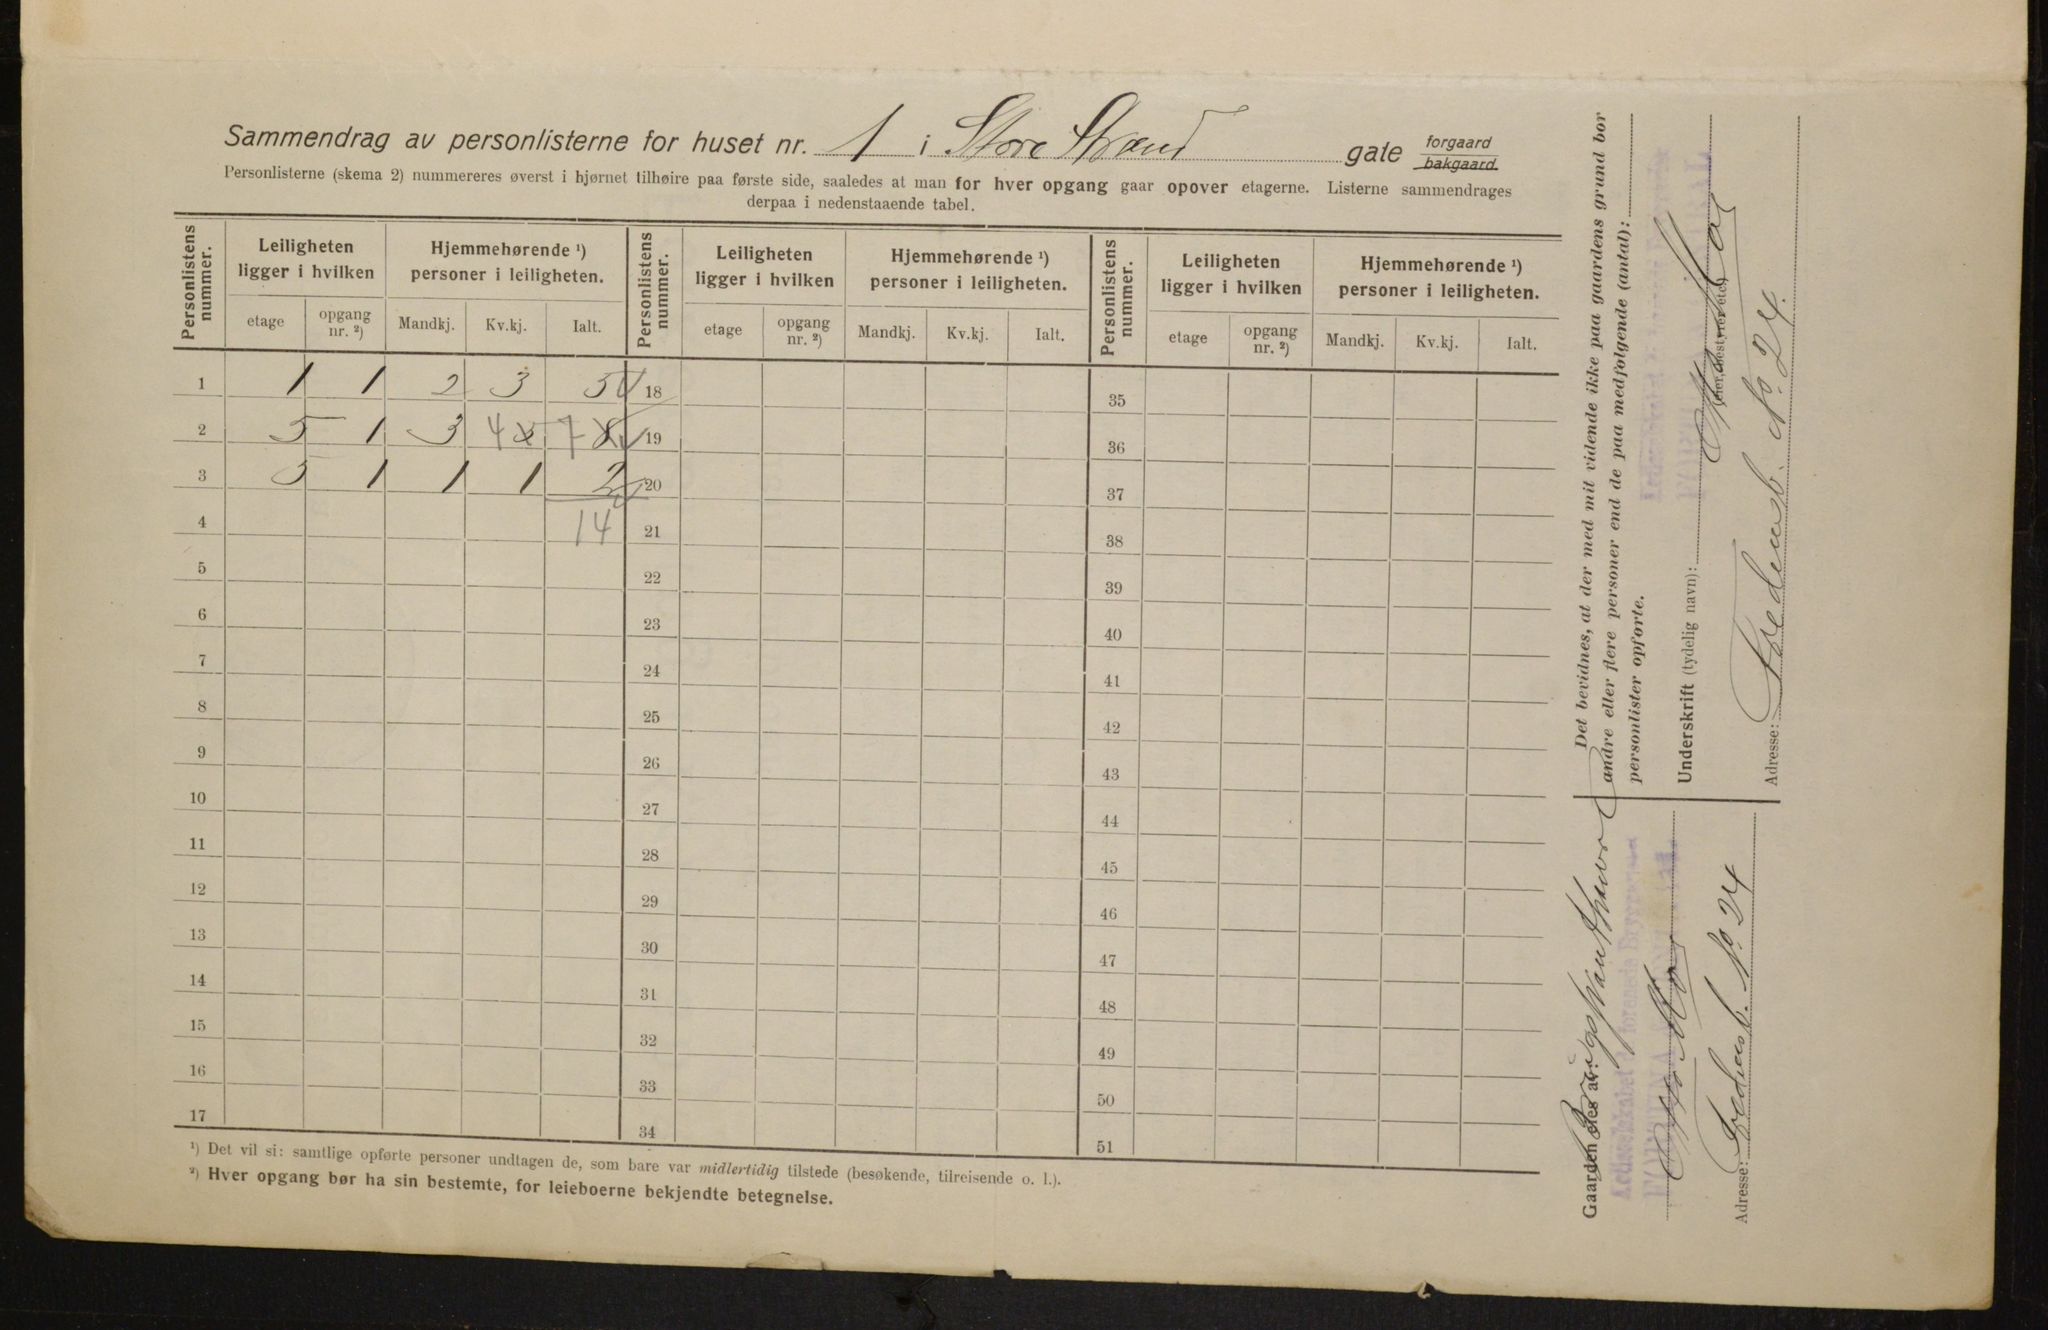 Sammendrag av personlisterne for huset nr. 1 i Store Strand gate forgaard bakgaard.
Personlisterne (skema 2) nummereres øverst i hjørnet tilhøire paa første side, saaledes at man for hver opgang gaar opover etagerne. Listerne sammendrages
derpaa i nedenstaaende tabel.
Personlistens nummer. Leiligheten ligger i hvilken Hjemmehørende ¹) personer i leiligheten. Personlistens nummer. Leiligheten ligger i hvilken Hjemmehørende ¹) personer i leiligheten. Personlistens nummer. Leiligheten ligger i hvilken Hjemmehørende ¹) personer i leiligheten.
etage opgang nr. ²) Mandkj. Kv.kj. Ialt. etage opgang nr. ²) Mandkj. Kv.kj. Ialt. etage opgang nr. ²) Mandkj. Kv.kj. Ialt.
1 1 1 2 3 5 18 35
2 5 1 3 4 7 19 36
3 5 1 1 1 2 20 37
4 14 21 38
5 22 39
6 23 40
7 24 41
8 25 42
9 26 43
10 27 44
11 28 45
12 29 46
13 30 47
14 31 48
15 32 49
16 33 50
17 34 51
¹) Det vil si: samtlige opførte personer undtagen de, som bare var midlertidig tilstede (besøkende, tilreisende o. l.).
²) Hver opgang bør ha sin bestemte, for leieboerne bekjendte betegnelse.
Det bevidnes, at der med mit vidende ikke paa gaardens grund bor
andre eller flere personer end de paa medfølgende (antal):
personlister opførte.
Underskrift (tydelig navn):
(eier, bestyrer etc.)
Adresse: Fredensb. No. 24.
Gaarden eies av:
Adresse: Fredensb. No. 24